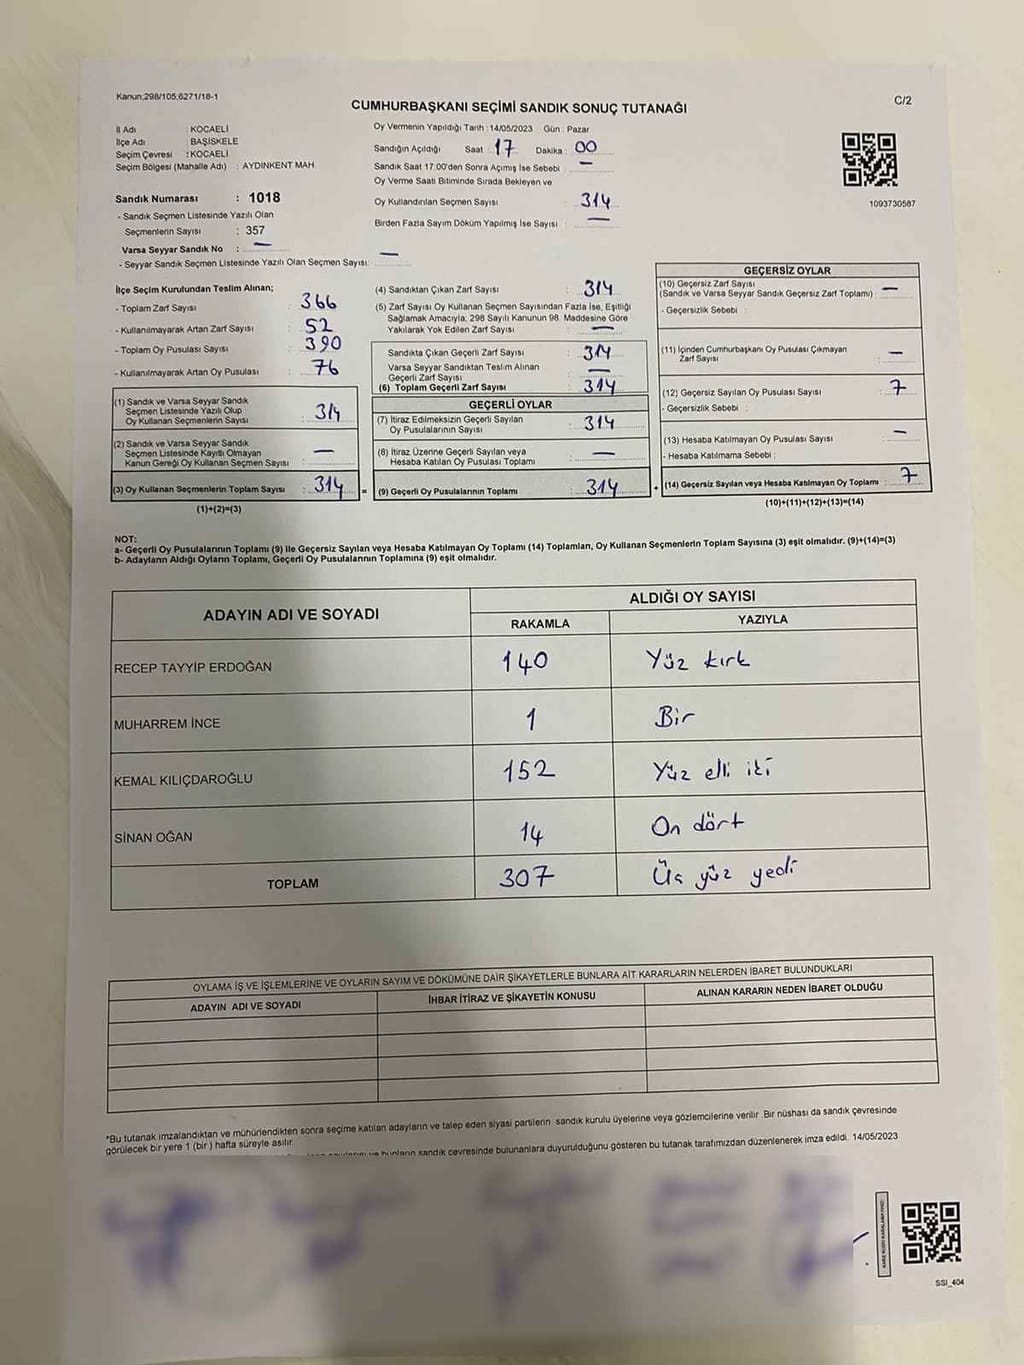 Kanun;298/105,6271/18-1
C/2
CUMHURBAŞKANI SEÇİMİ SANDIK SONUÇ TUTANAĞI
İl Adı : KOCAELİ
İlçe Adı : BAŞİSKELE
Seçim Çevresi : KOCAELİ
Seçim Bölgesi (Mahalle Adı) : AYDINKENT MAH
Oy Vermenin Yapıldığı Tarih : 14/05/2023 Gün : Pazar
Sandığın Açıldığı Saat : 17 Dakika : 00
Sandık Saat 17:00'den Sonra Açımış İse Sebebi : —
Oy Verme Saati Bitiminde Sırada Bekleyen ve
Oy Kullandırılan Seçmen Sayısı : 314
Birden Fazla Sayım Döküm Yapılmış İse Sayısı : —
1093730587
Sandık Numarası : 1018
- Sandık Seçmen Listesinde Yazılı Olan
Seçmenlerin Sayısı : 357
Varsa Seyyar Sandık No : —
- Seyyar Sandık Seçmen Listesinde Yazılı Olan Seçmen Sayısı: —
İlçe Seçim Kurulundan Teslim Alınan;
- Toplam Zarf Sayısı : 366
- Kullanılmayarak Artan Zarf Sayısı : 52
- Toplam Oy Pusulası Sayısı : 390
- Kullanılmayarak Artan Oy Pusulası : 76
(1) Sandık ve Varsa Seyyar Sandık
Seçmen Listesinde Yazılı Olup
Oy Kullanan Seçmenlerin Sayısı : 314
(2) Sandık ve Varsa Seyyar Sandık
Seçmen Listesinde Kayıtlı Olmayan
Kanun Gereği Oy Kullanan Seçmen Sayısı : —
(3) Oy Kullanan Seçmenlerin Toplam Sayısı : 314
(1)+(2)=(3)
(4) Sandıktan Çıkan Zarf Sayısı : 314
(5) Zarf Sayısı Oy Kullanan Seçmen Sayısından Fazla İse, Eşitliği
Sağlamak Amacıyla; 298 Sayılı Kanunun 98. Maddesine Göre
Yakılarak Yok Edilen Zarf Sayısı : —
Sandıkta Çıkan Geçerli Zarf Sayısı : 314
Varsa Seyyar Sandıktan Teslim Alınan
Geçerli Zarf Sayısı : —
(6) Toplam Geçerli Zarf Sayısı : 314
GEÇERLİ OYLAR
(7) İtiraz Edilmeksizin Geçerli Sayılan
Oy Pusulalarının Sayısı : 314
(8) İtiraz Üzerine Geçerli Sayılan veya
Hesaba Katılan Oy Pusulası Toplamı : —
= (9) Geçerli Oy Pusulalarının Toplamı : 314
GEÇERSİZ OYLAR
(10) Geçersiz Zarf Sayısı
(Sandık ve Varsa Seyyar Sandık Geçersiz Zarf Toplamı) : —
- Geçersizlik Sebebi :
(11) İçinden Cumhurbaşkanı Oy Pusulası Çıkmayan
Zarf Sayısı : —
(12) Geçersiz Sayılan Oy Pusulası Sayısı : 7
- Geçersizlik Sebebi :
(13) Hesaba Katılmayan Oy Pusulası Sayısı : —
- Hesaba Katılmama Sebebi :
+ (14) Geçersiz Sayılan veya Hesaba Katılmayan Oy Toplamı : 7
(10)+(11)+(12)+(13)=(14)
NOT:
a- Geçerli Oy Pusulalarının Toplamı (9) ile Geçersiz Sayılan veya Hesaba Katılmayan Oy Toplamı (14) Toplamları, Oy Kullanan Seçmenlerin Toplam Sayısına (3) eşit olmalıdır. (9)+(14)=(3)
b- Adayların Aldığı Oyların Toplamı, Geçerli Oy Pusulalarının Toplamına (9) eşit olmalıdır.
ADAYIN ADI VE SOYADI
ALDIĞI OY SAYISI
RAKAMLA YAZIYLA
RECEP TAYYİP ERDOĞAN 140 Yüz kırk
MUHARREM İNCE 1 Bir
KEMAL KILIÇDAROĞLU 152 Yüz elli iki
SİNAN OĞAN 14 On dört
TOPLAM 307 Üç yüz yedi
OYLAMA İŞ VE İŞLEMLERİNE VE OYLARIN SAYIM VE DÖKÜMÜNE DAİR ŞİKAYETLERLE BUNLARA AİT KARARLARIN NELERDEN İBARET BULUNDUKLARI
ADAYIN ADI VE SOYADI İHBAR İTİRAZ VE ŞİKAYETİN KONUSU ALINAN KARARIN NEDEN İBARET OLDUĞU
*Bu tutanak imzalandıktan ve mühürlendikten sonra seçime katılan adayların ve talep eden siyasi partilerin sandık kurulu üyelerine veya gözlemcilerine verilir. Bir nüshası da sandık çevresinde
görülecek bir yere 1 (bir) hafta süreyle asılır.
sandık çevresinde bulunanlara duyurulduğunu gösteren bu tutanak tarafımızdan düzenlenerek imza edildi. 14/05/2023
SSI_404